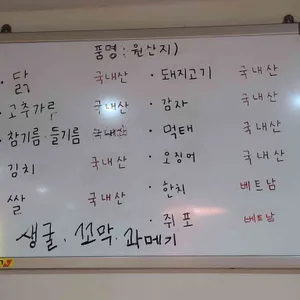 품명 : 원산지)
· 닭 국내산 · 돼지고기 국내산
· 고추가루 국내산 · 감자 국내산
· 참기름 · 들기름 국내산 · 먹태 국내산
· 김치 국내산 · 오징어 국내산
· 쌀 국내산 · 한치 베트남
· 쥐포 베트남
생굴 . 꼬막 . 과메기